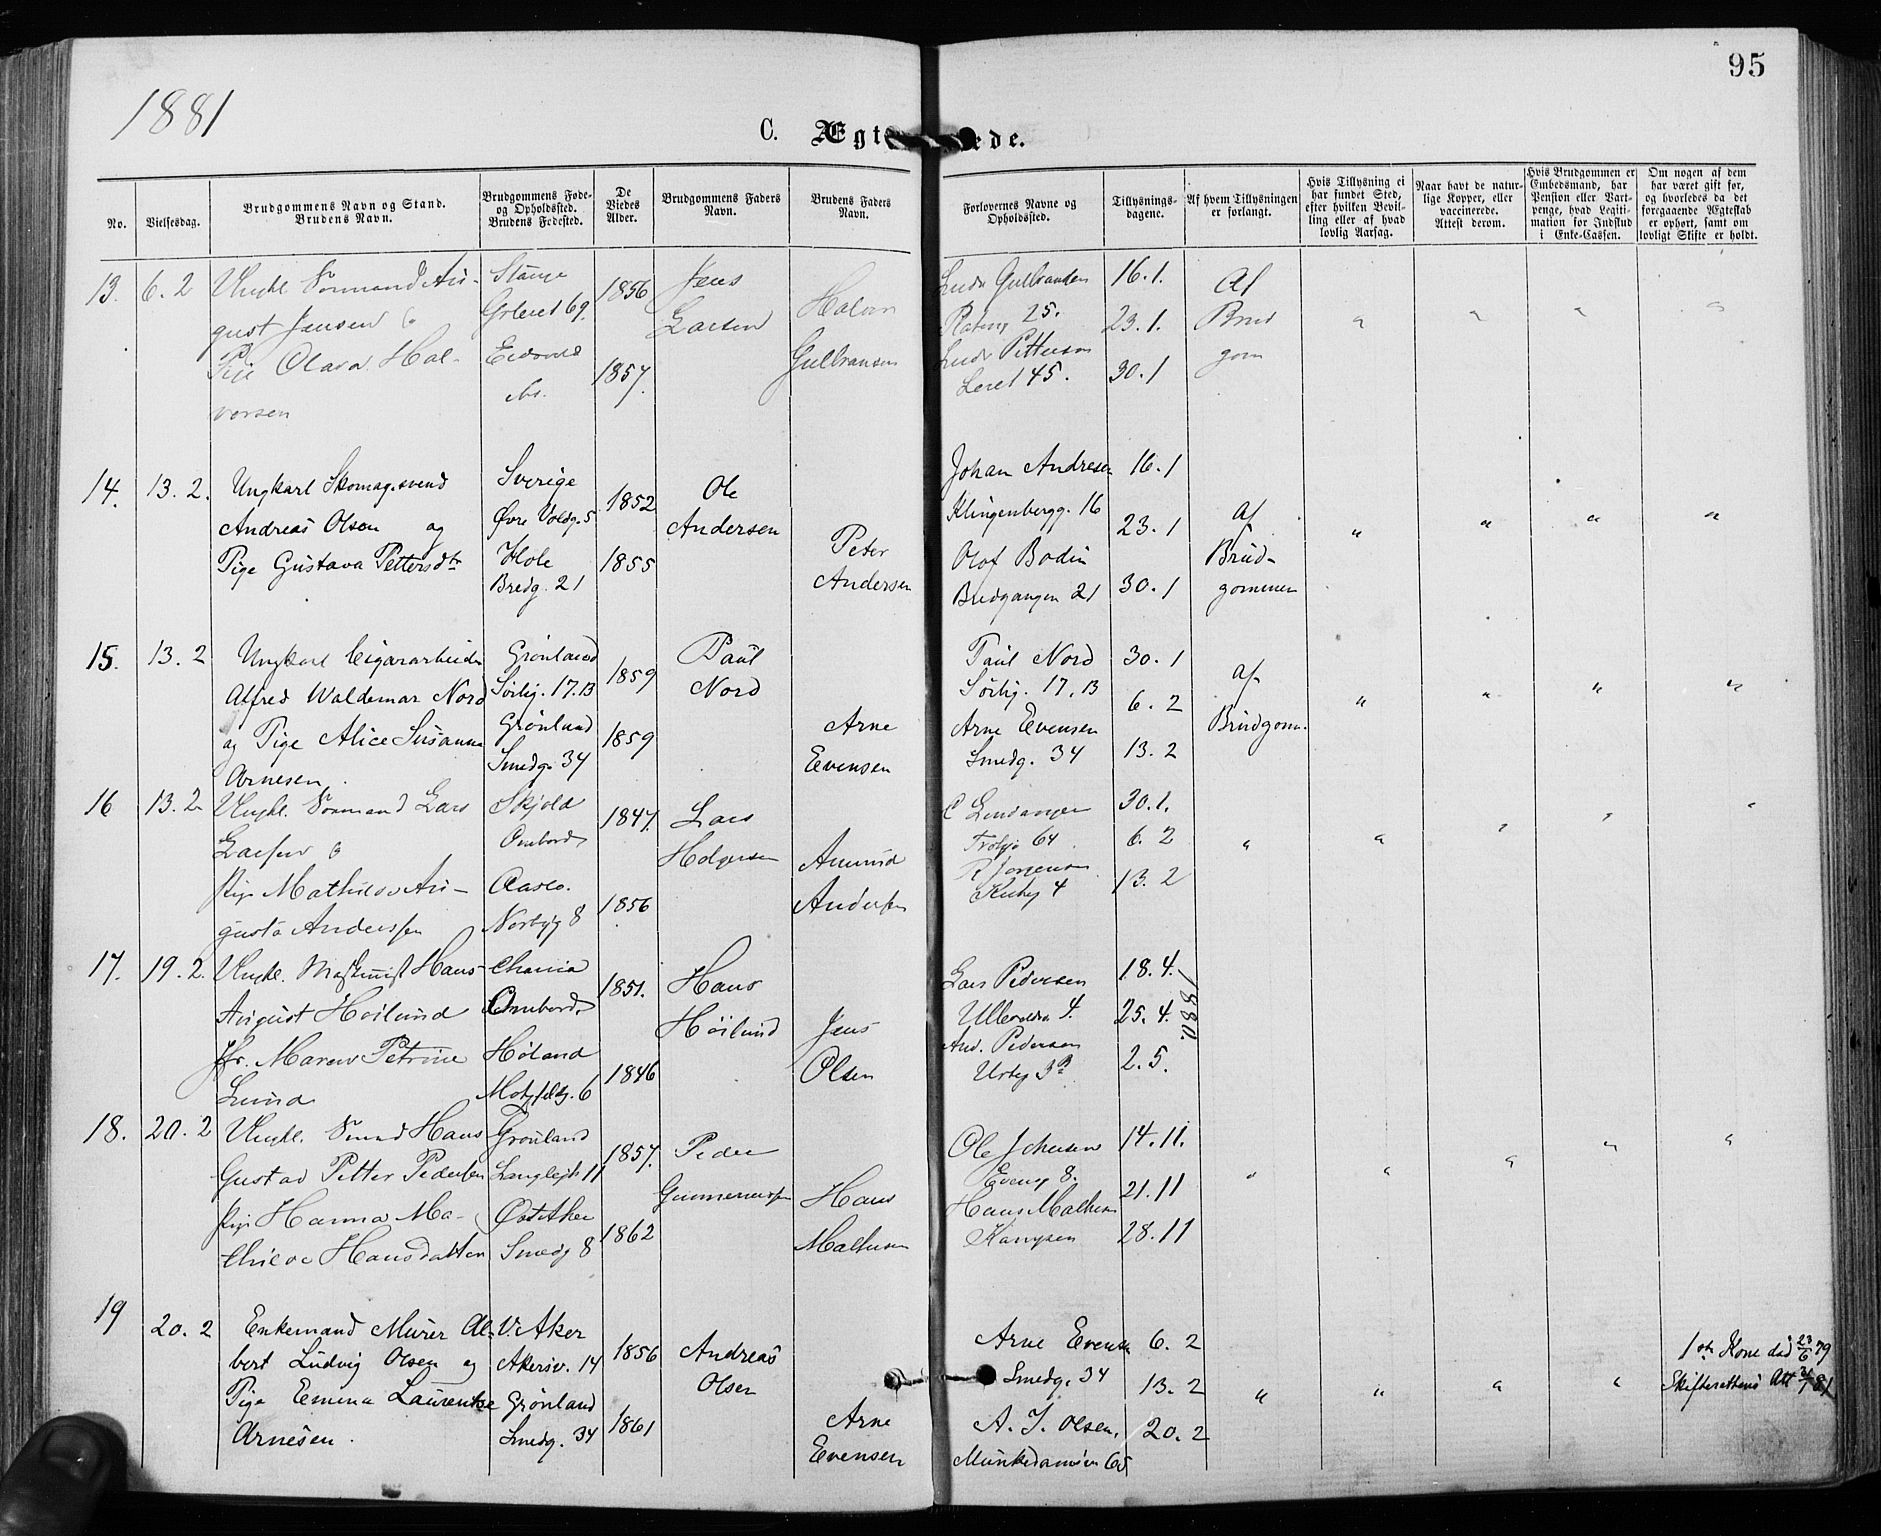 95
1881
C. Ægt ede.
No.
Vielsesdag.
Brudgommens Navn og Stand.
Brudens Navn.
Brudgommens Føde-
og Opholdssted.
Brudens Fødested.
De
Viedes
Alder.
Brudgommens Faders
Navn.
Brudens Faders
Navn.
Forlovernes Navne og
Opholdssted.
Tillysnings-
dagene.
Af hvem Tillysningen
er forlangt.
Hvis Tillysning ei
har fundet Sted,
efter hvilken Bevil-
ling eller af hvad
lovlig Aarsag.
Naar havt de natur-
lige Kopper, eller
vaccinerede.
Attest derom.
Hvis Brudgommen er
Embedsmand, har
Pension eller Vart-
penge, hvad Legiti-
mation for Indskud
i Enke-Cassen.
Om nogen af dem
har været gift før,
og hvorledes da det
foregaaende Ægteskab
er ophørt, samt om
lovligt Skifte er holdt.
13. 6.2
gust Jensen
Pige Olava Hal-
vorsen
Stange
Grleret 69.
1856
1857.
Jens
Larsen
Halvor
Gulbransen
Gulbransen
25.
Pettersen
Leret 45.
16.1.
23.1.
30.1
Af
Brud
gom
14. 13.2.
Ungkarl Skomag.svend
Andreas Olsen og
Pige Gustava Pettersdtr
Sverige
Øvre Voldg. 5
Hole
Bredg. 21
1852
1855
Ole
Andersen
Peter
Andersen
Johan Andresen
Klingenbergg. 16
Olof Bodin
Bredgangen 21
16.1
23.1
30.1
af
Brud-
gommen
15. 13.2
Ungkarl Cigararbeider
Alfred Waldemar Nord
og Pige Alice Susanna
Arnesen.
Grønland
Sørlig. 17.13
Grønland
Smedg. 34
1859
1859
Paul
Nord
Arne
Evensen
Paul Nord
Sørlig. 17.13
Arne Evensen
Smedg. 34
30.1
6.2
13.2
af
Brudgom.
16 13.2
Ungkl. Sømand Lars
Larsen
Pige Mathilde Au-
gusta Anderssen
Skjold
Ombord
Norbyg 8
1847.
1856
Lars
Holgersen
Amund
Anderssen
64
4
30.1.
6.2
13.2
17. 19.2.
Ungkl. Maskinist Hans
August Høilund
Jfr. Maren Petrine
Lund
Chania
Ombord
Høland
Motzfeldtg. 6
1851.
1846
Hans
Høilund
Jens
Olsen
Lars Pedersen
And. Pedersen
18.4.
25.4.
2.5.
1880.
18. 20.2
Ungkl. Smed Hans
Gustav Petter Pedersen
Pige Hanna Ma-
thilde Hansdatter
Grønland
Langleik 11
Østr Aker
Smedg 8
1857.
1862
Peder
Gunnerussen
Hans
Mathisen
Ole Johnsen
Hans Mathisen
Kampen
14.11.
21.11
28.11
19
20.2
Enkemand Murer Al-
bert Ludvig Olsen og
Pige Emma Laurentze
Arnesen.
V. Aker
Akersv. 14
Grønland
Smedg. 34
1856
1861
Andreas
Olsen
Arne
Evensen
Arne Evensen
Smedg. 34
A. J. Olsen,
Munkedamsvn 65
6.2
13.2
20.2
1ste Kone død 23/6 79
Skifterettens Att